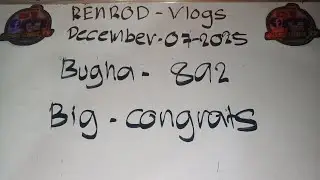 RENROD - Vlogs
December-07-2025
Bugna - 892
Big - congrats